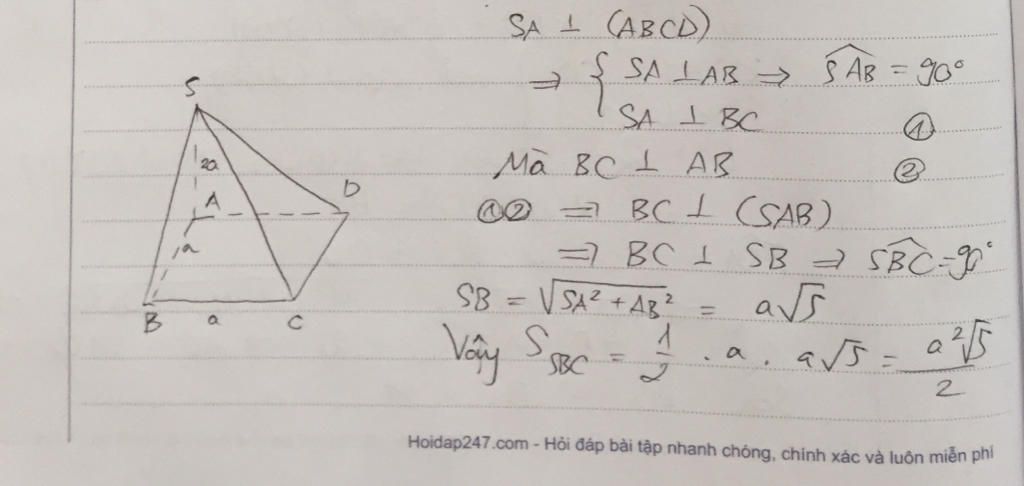 SA ⊥ (ABCD)
⇒ { SA ⊥ AB ⇒ \widehat{SAB} = 90°
SA ⊥ BC ①
Mà BC ⊥ AB ②
①② ⇒ BC ⊥ (SAB)
⇒ BC ⊥ SB ⇒ \widehat{SBC} = 90°
SB = √(SA² + AB²) = a√5
Vậy S_{SBC} = 1/2 . a . a√5 = a²√5/2
S
2a
A
D
a
B a C
Hoidap247.com - Hỏi đáp bài tập nhanh chóng, chính xác và luôn miễn phí